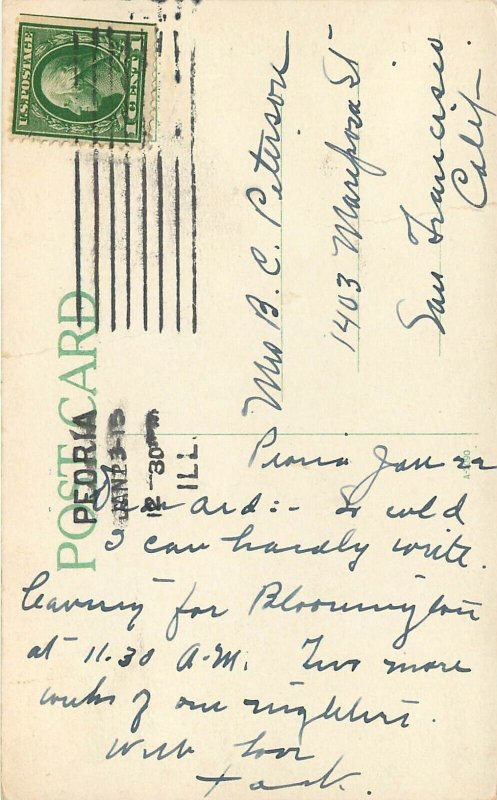 U.S. POSTAGE
1 CENT 1
POST CARD
PEORIA
JAN 23
12 - 30
ILL.
Mrs B. C. Peterson
1403 Mariposa St
San Francisco
Calif -
A-
Peoria Jan 22
Dear :- So cold
I can hardly write.
Leaving for Bloomington
at 11.30 A.M. Two more
weeks of one nighters.
With love